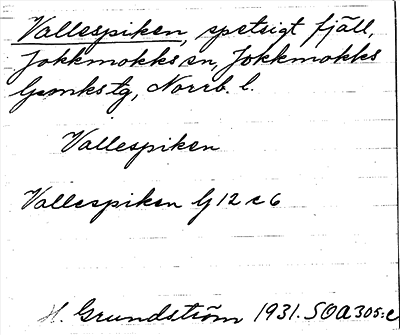 Vallespiken, spetsigt fjäll,
Jokkmokks sn, Jokkmokks
lpmkstg, Norrb. l.
Vallespiken
Vallespiken lj 12 c 6
H. Grundström 1931. SOA 305:c